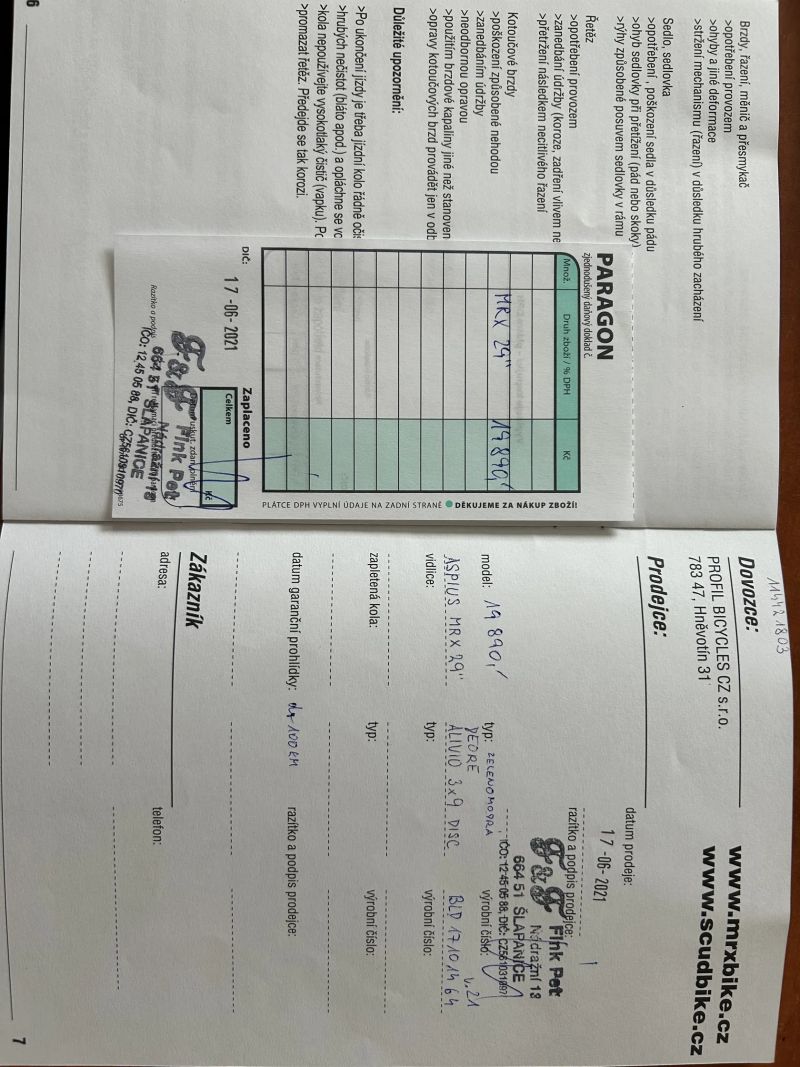 Brzdy, řazení, měnič a přesmykač
>opotřebení provozem
>ohyby a jiné deformace
>stržení mechanismu (řazení) v důsledku hrubého zacházení
Sedlo, sedlovka
>opotřebení , poškození sedla v důsledku pádu
>ohyb sedlovky při přetížení (pád nebo skoky)
>rýhy způsobené posuvem sedlovky v rámu
Řetěz
>opotřebení provozem
>zanedbání údržby (koroze, zadření vlivem ne
>přetržení následkem necitlivého řazení
Kotoučové brzdy
>poškození způsobené nehodou
>zanedbáním údržby
>neodbornou opravou
>použitím brzdové kapaliny jiné než stanoven
>opravy kotoučových brzd provádět jen v odb
Důležité upozornění:
>Po ukončení jízdy je třeba jízdní kolo řádně očis
>hrubých nečistot (bláto apod.) a opláchne se vo
>kola nepoužívejte vysokotlaký čistič (vapku). Po
>promazat řetěz. Předejde se tak korozi.
6
PARAGON
zjednodušený daňový doklad č.
Množ. Druh zboží / % DPH Kč
MRX 29" 19 890,-
Zaplaceno
Celkem Kč
DIČ:
17-06-2021
Razítko a podpis
F&F Fink Pet
Nádražní 18
664 51 ŠLAPANICE
IČO: 12 45 05 88, DIČ: CZ5610310971
PLÁTCE DPH VYPLNÍ ÚDAJE NA ZADNÍ STRANĚ DĚKUJEME ZA NÁKUP ZBOŽÍ!
11442 1803
Dovozce:
PROFIL BICYCLES CZ s.r.o.
783 47, Hněvotín 31
www.mrxbike.cz
www.scudbike.cz
Prodejce:
datum prodeje:
17-06-2021
razítko a podpis prodejce:
F&F Fink Pet
Nádražní 18
664 51 ŠLAPANICE
IČO: 12 45 05 88, DIČ: CZ5610310971
model: 19 890,- typ: ZELENOMODRA výrobní číslo: v.21
DEORE
ASPIUS MRX 29" ALIVIO 3x9 DISC BLD 17101464
vidlice: typ: výrobní číslo:
zapletená kola: typ: výrobní číslo:
datum garanční prohlídky: do 100 KM razítko a podpis prodejce:
Zákazník
adresa: telefon:
7